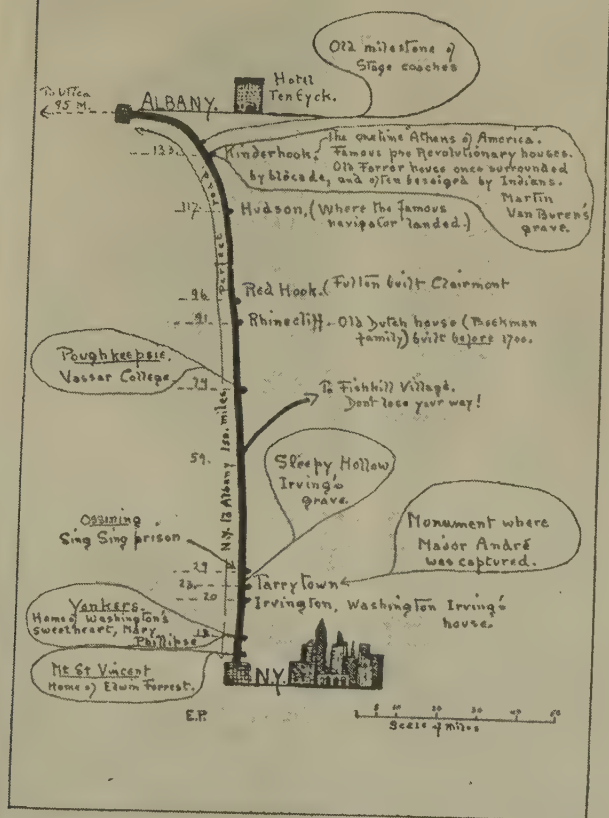 Old milestone of
Stage coaches
To Utica
95 M.
ALBANY.
Hotel
Ten Eyck.
133.
Kinderhook.
The onetime Athens of America.
Famous pre Revolutionary houses.
Old Forror house once surrounded
by blocade, and often beseiged by Indians.
Martin
Van Buren's
grave.
Perfect road
117.
Hudson, (Where the famous
navigator landed.)
96.
Red Hook. (Fulton built Clairmont
91.
Rhinecliff - Old Dutch house (Beekman
family) built before 1700.
Poughkeepsie.
Vassar College
74
To Fishkill Village.
Dont lose your way!
N.Y. to Albany 150. miles
59.
Sleepy Hollow
Irving's
grave.
Ossining
Sing Sing prison
Monument where
Major André
was captured.
29
Tarrytown
20
Irvington, Washington Irving's
house.
Yonkers.
Home of Washington's
sweetheart, Mary
Phillipse
Mt St Vincent
Home of Edwin Forrest.
N.Y.
E.P.
5 10 20 30 40 50
Scale of miles